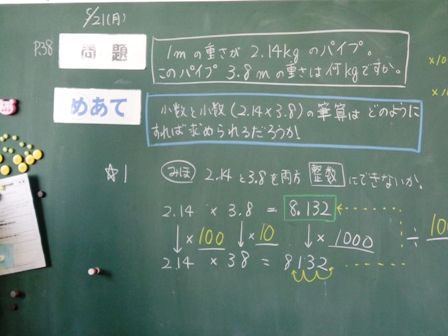 5/21(月)
P.38
問題
1mの重さが 2.14kg のパイプ。
このパイプ 3.8mの重さは何kgですか。
めあて
小数と小数(2.14×3.8)の筆算は どのように
すれば求められるだろうか!
☆1
みほ 2.14と3.8を両方 整数 にできないか。
2.14 × 3.8 = 8.132
↓×100 ↓×10 ↓×1000
214 × 38 = 8132